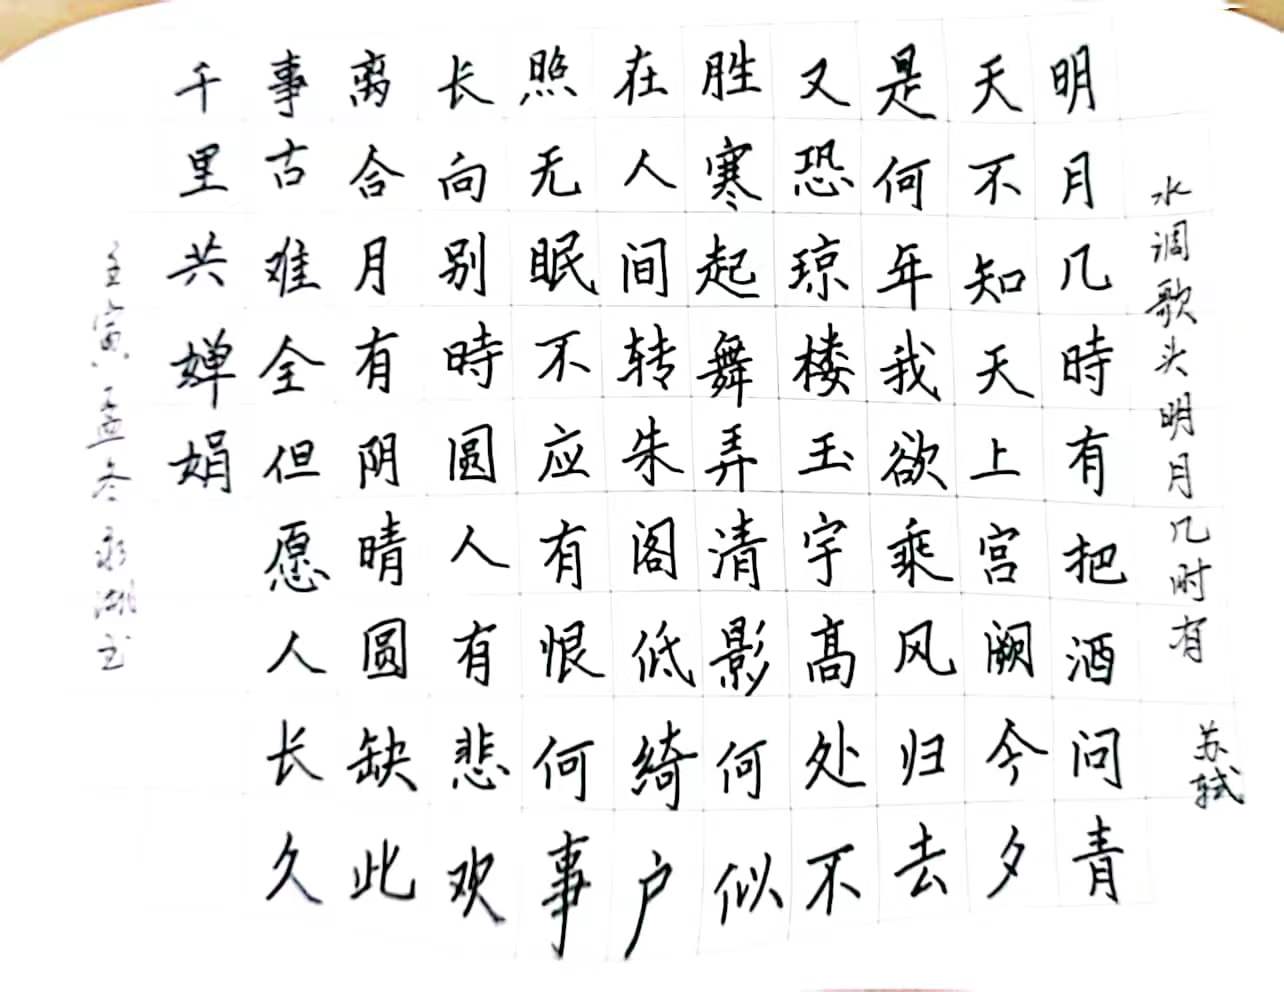 水调歌头明月几时有
苏轼
明月几時有把酒问青
天不知天上宫阙今夕
是何年我欲乘风归去
又恐琼楼玉宇高处不
胜寒起舞弄清影何似
在人间转朱阁低绮户
照无眠不应有恨何事
长向别時圆人有悲欢
离合月有阴晴圆缺此
事古难全但愿人长久
千里共婵娟
壬寅孟冬永湖书